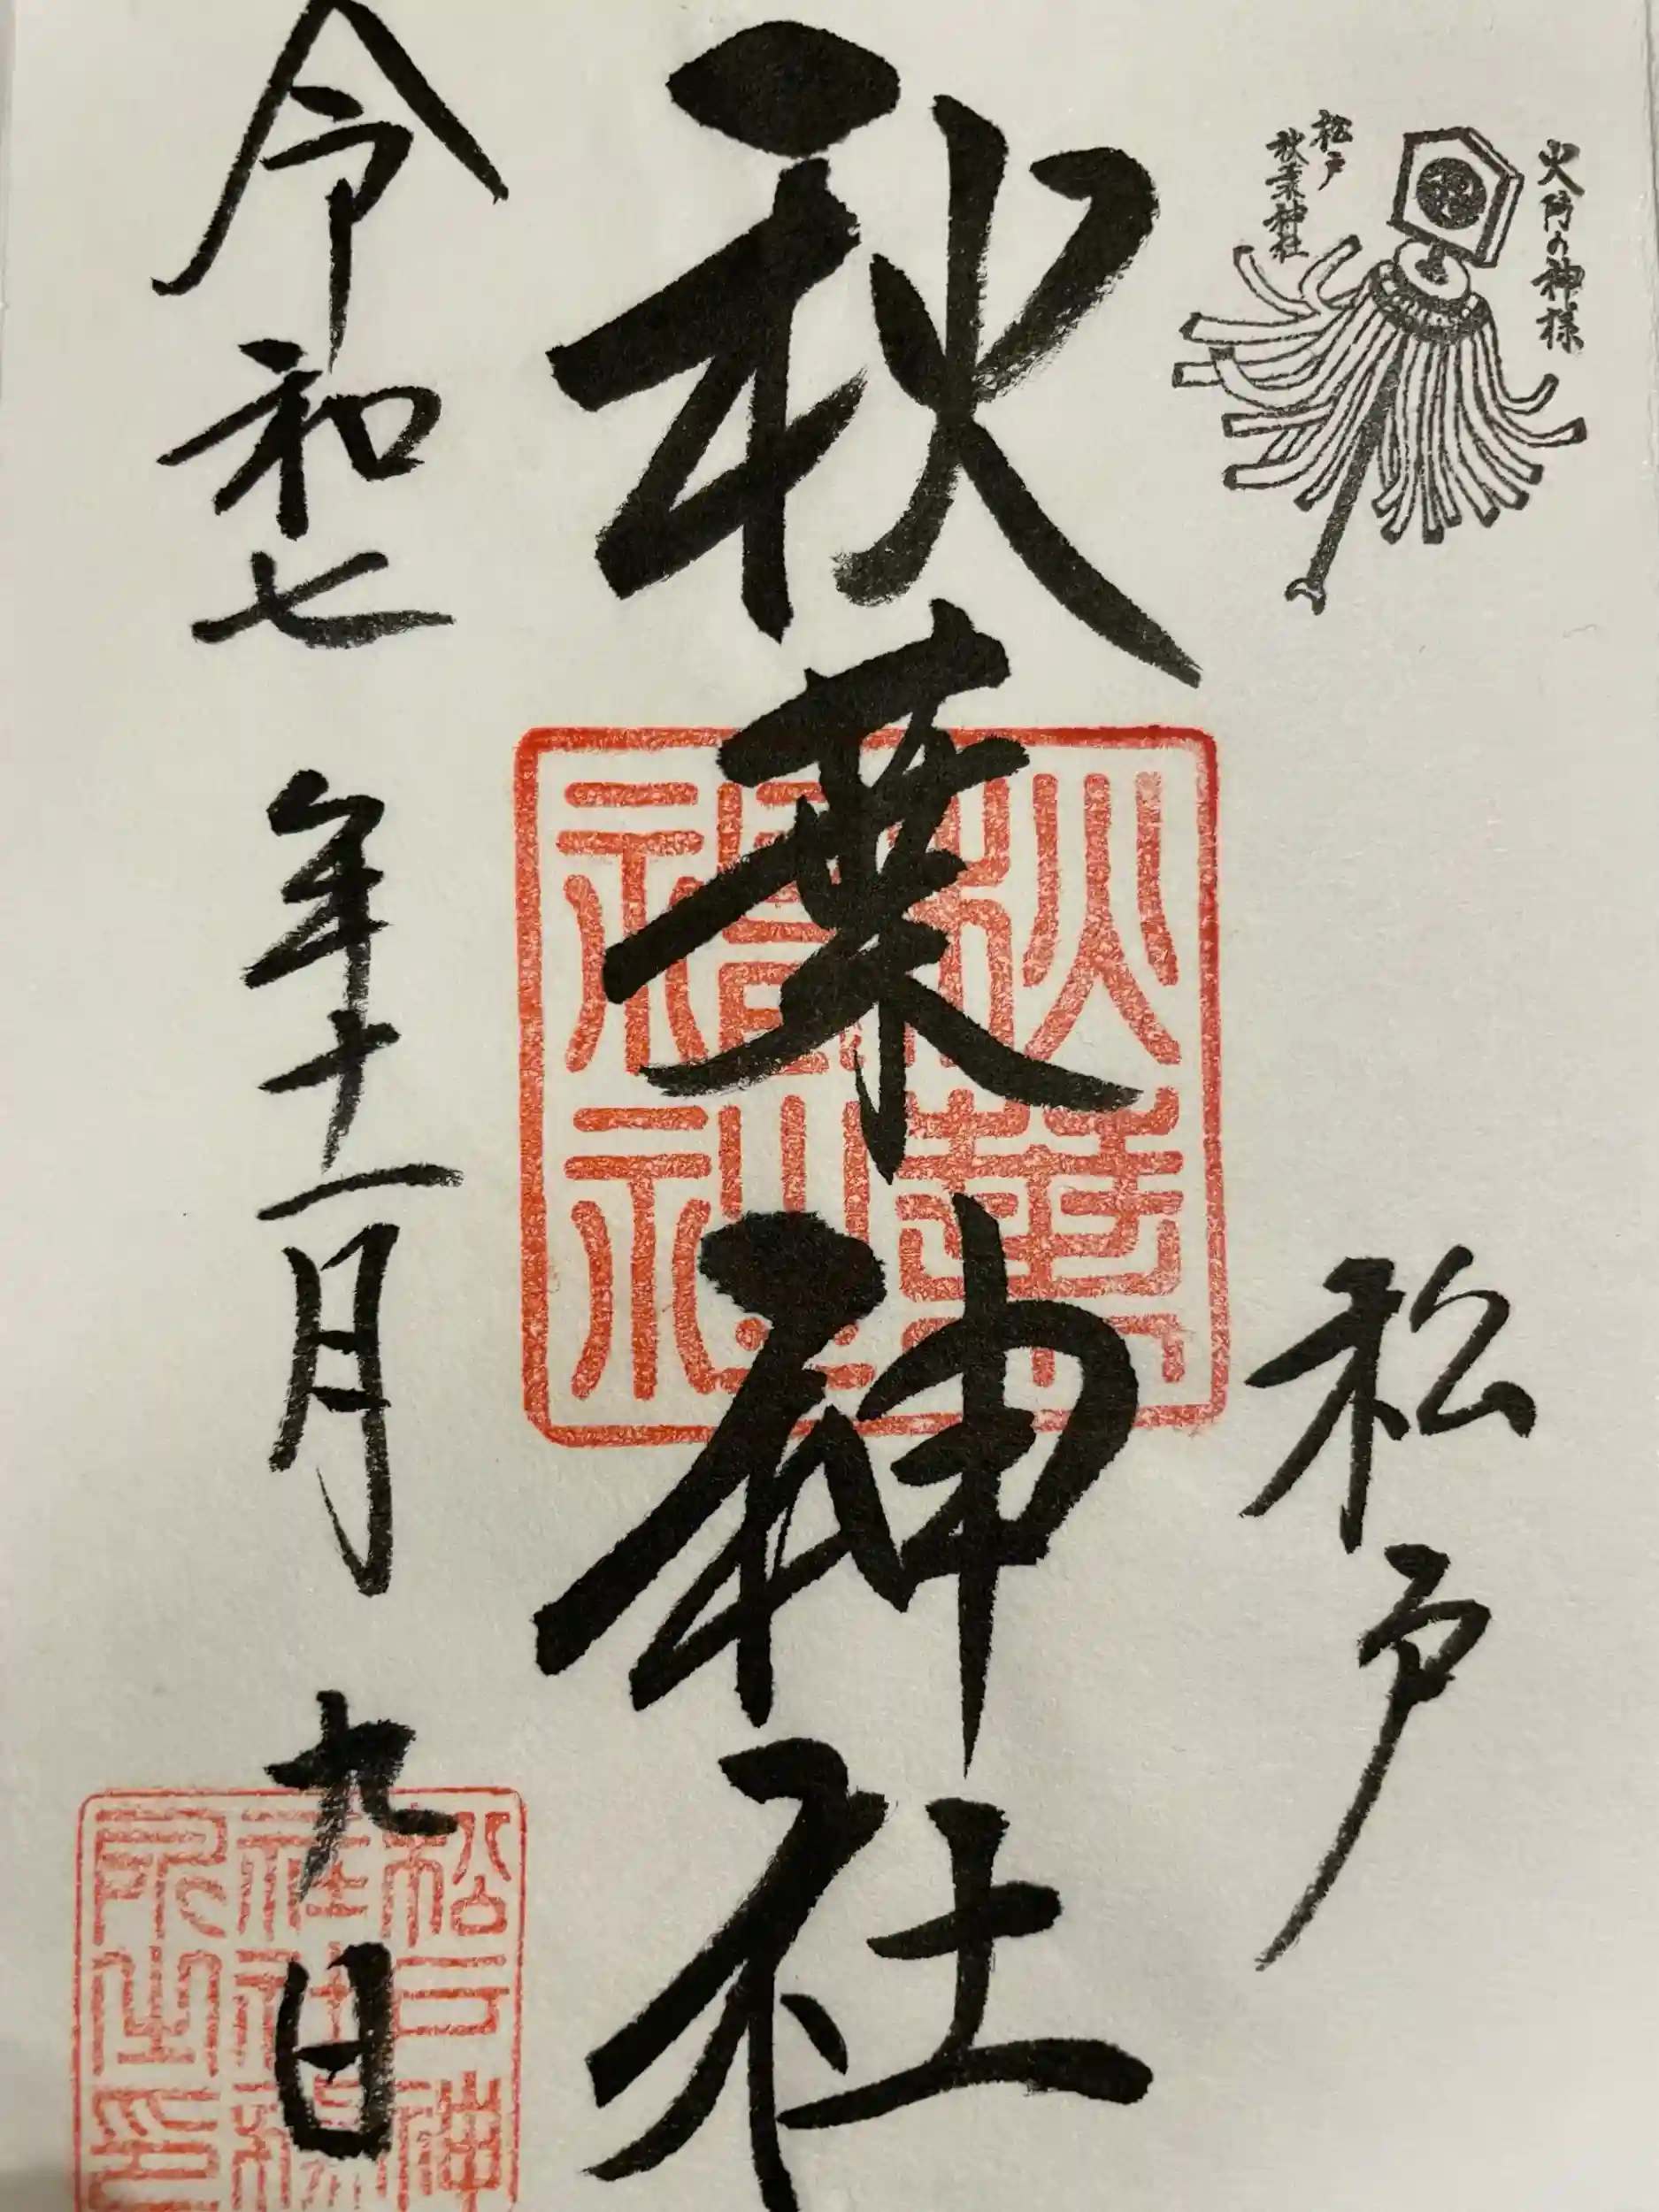 火防の神様
松戸
秋葉神社
松戸
秋葉神社
秋葉神社
令和七年十一月九日